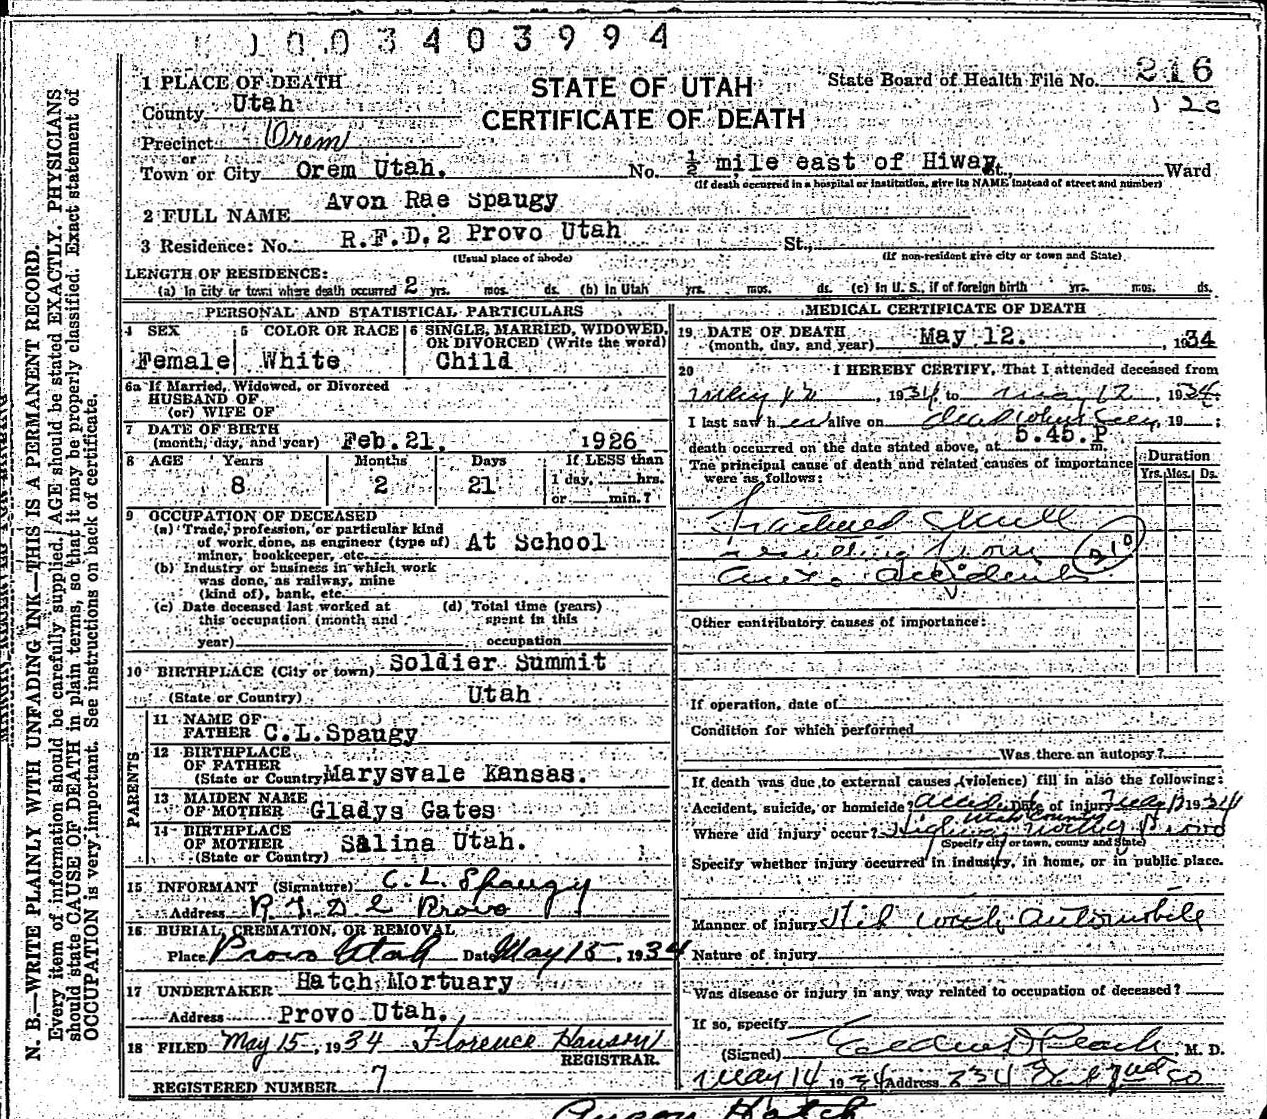 1003403994
STATE OF UTAH
CERTIFICATE OF DEATH
State Board of Health File No. 216
120
1 PLACE OF DEATH
County Utah
Precinct Orem
or
Town or City Orem Utah. No. ½ mile east of Hiway St., Ward
(If death occurred in a hospital or institution, give its NAME instead of street and number)
2 FULL NAME Avon Rae Spaugy
3 Residence: No. R.F.D.2 Provo Utah St.,
(Usual place of abode) (If non-resident give city or town and State)
LENGTH OF RESIDENCE:
(a) In city or town where death occurred 2 yrs. mos. ds. (b) In Utah yrs. mos. ds. (c) In U. S., if of foreign birth yrs. mos. ds.
PERSONAL AND STATISTICAL PARTICULARS
4 SEX 5 COLOR OR RACE 6 SINGLE, MARRIED, WIDOWED, OR DIVORCED (Write the word)
Female White Child
6a If Married, Widowed, or Divorced
HUSBAND OF
(or) WIFE OF
7 DATE OF BIRTH
(month, day, and year) Feb. 21. 1926
8 AGE Years Months Days If LESS than
8 2 21 1 day, hrs.
or min.?
9 OCCUPATION OF DECEASED
(a) Trade, profession, or particular kind
of work done, as engineer (type of) At School
miner, bookkeeper, etc.
(b) Industry or business in which work
was done, as railway, mine
(kind of), bank, etc.
(c) Date deceased last worked at (d) Total time (years)
this occupation (month and spent in this
year) occupation
10 BIRTHPLACE (City or town) Soldier Summit
(State or Country) Utah
PARENTS
11 NAME OF
FATHER C.L.Spaugy
12 BIRTHPLACE
OF FATHER
(State or Country) Marysvale Kansas.
13 MAIDEN NAME
OF MOTHER Gladys Gates
14 BIRTHPLACE
OF MOTHER Salina Utah.
(State or Country)
15 INFORMANT (Signature) C. L. Spaugy
Address R F D 2 Provo
16 BURIAL, CREMATION, OR REMOVAL
Place Provo Utah Date May 15, 1934
17 UNDERTAKER Hatch Mortuary
Address Provo Utah.
18 FILED May 15, 1934 Florence Hanson
REGISTRAR.
REGISTERED NUMBER 7
MEDICAL CERTIFICATE OF DEATH
19 DATE OF DEATH
(month, day, and year) May 12. , 1934
20 I HEREBY CERTIFY, That I attended deceased from
May 12, 1934, to May 12, 1934
I last saw her alive on dead when seen, 19 ;
death occurred on the date stated above, at 5.45.P m.
The principal cause of death and related causes of importance
were as follows:
Duration
Yrs. Mos. Ds.
Fractured Skull
resulting from 210
auto accident
Other contributory causes of importance:
If operation, date of
Condition for which performed
Was there an autopsy?
If death was due to external causes (violence) fill in also the following:
Accident, suicide, or homicide? accident Date of injury May 12 1934
Utah County
Where did injury occur? Highway north of Provo
(Specify city or town, county and State)
Specify whether injury occurred in industry, in home, or in public place.
Manner of injury Hit with automobile
Nature of injury
Was disease or injury in any way related to occupation of deceased?
If so, specify
(Signed) M. D.
May 14 1934 Address 234
Anson Hatch
N. B.—WRITE PLAINLY WITH UNFADING INK—THIS IS A PERMANENT RECORD.
Every item of information should be carefully supplied. AGE should be stated EXACTLY. PHYSICIANS
should state CAUSE OF DEATH in plain terms, so that it may be properly classified. Exact statement of
OCCUPATION is very important. See instructions on back of certificate.